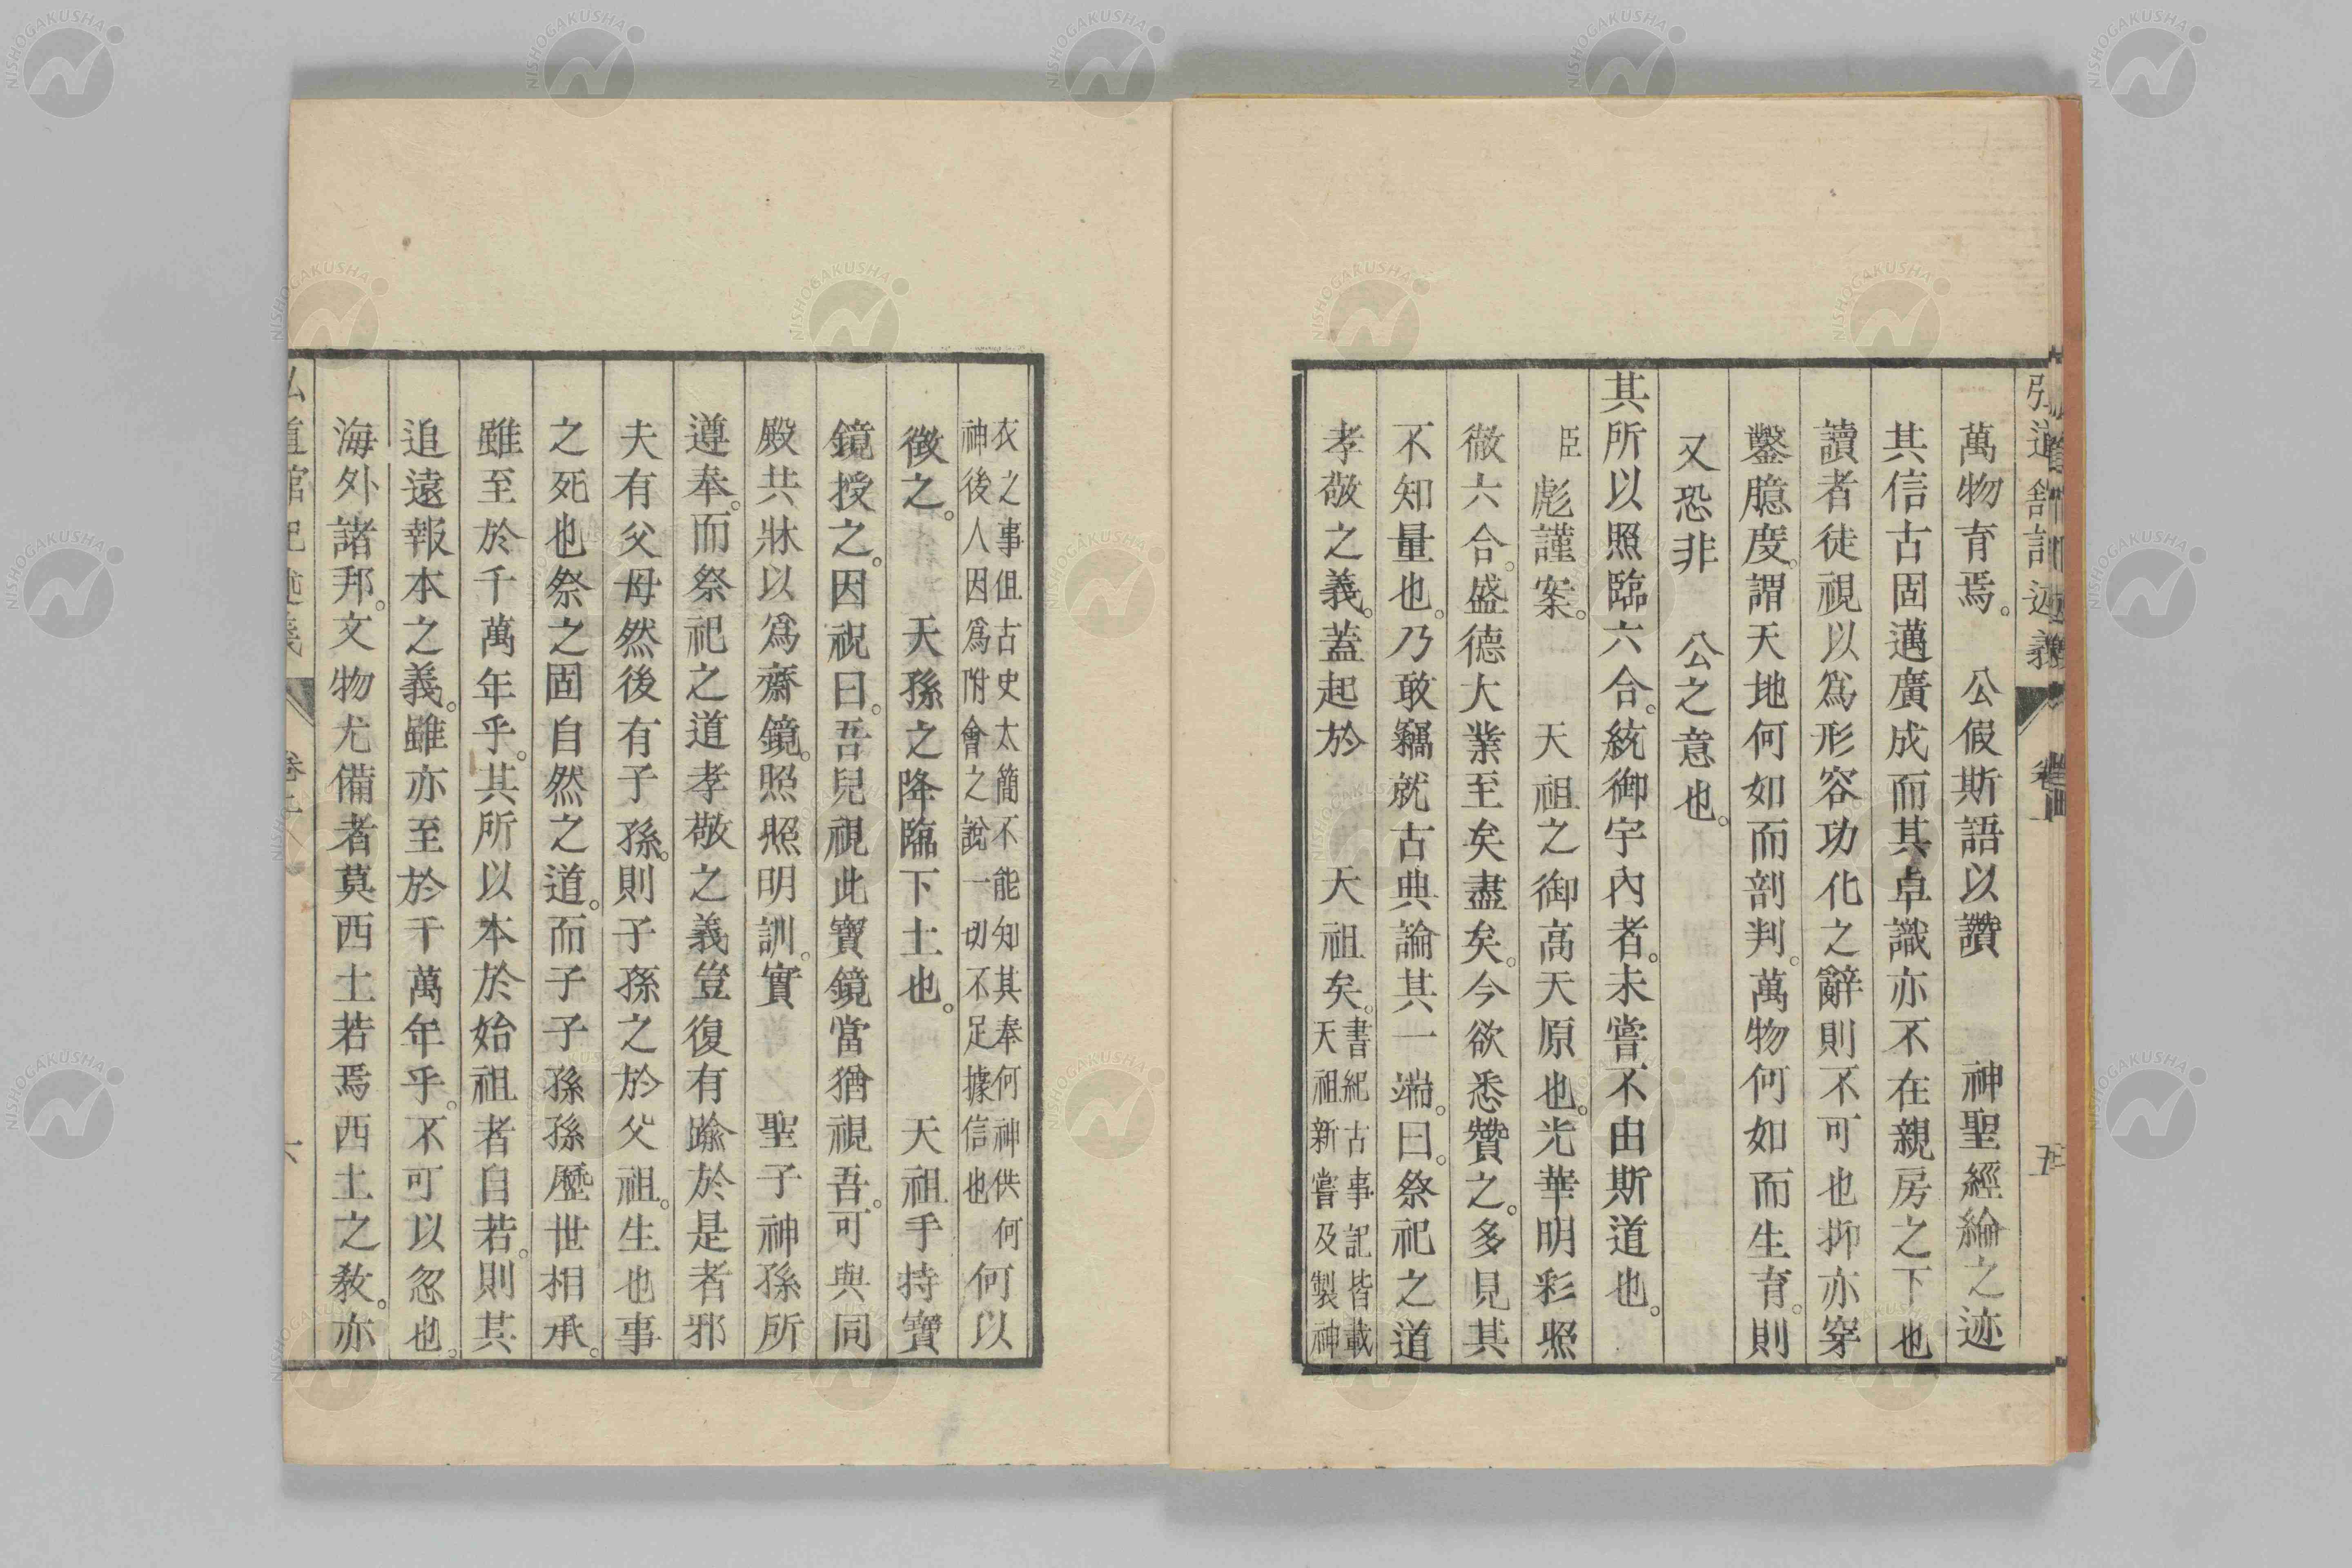 萬物育焉。　公假斯語以讚　　神聖經綸之迹
其信古固邁廣成而其卓識亦不在親房之下也
讀者徒視以爲形容功化之辭則不可也抑亦穿
鑿臆度。謂天地何如而剖判。萬物何如而生育。則
又恐非　公之意也。
其所以照臨六合。統御宇內者。未嘗不由斯道也。
臣彪謹案。　　天祖之御高天原也。光華明彩照
徹六合。盛德大業至矣盡矣。今欲悉贊之。多見其
不知量也。乃敢竊就古典論其一端。曰。祭祀之道
孝敬之義。蓋起於　　天祖矣。書紀古事記皆載
天祖新嘗及製神
衣之事但古史太簡不能知其奉何神供何
神後人因爲附會之說一切不足據信也
何以
徵之。　　天孫之降臨下土也。　　天祖手持寶
鏡授之。因祝曰。吾兒視此寶鏡當猶視吾。可與同
殿共牀以爲齋鏡。照照明訓。實　　聖子神孫所
遵奉。而祭祀之道孝敬之義豈復有踰於是者邪
夫有父母然後有子孫。則子孫之於父祖。生也事
之死也祭之固自然之道。而子子孫孫歷世相承。
雖至於千萬年乎。其所以本於始祖者自若。則其
追遠報本之義。雖亦至於千萬年乎。不可以忽也。
海外諸邦。文物尤備者莫西土若焉西土之敎。亦
NISHOGAKUSHA